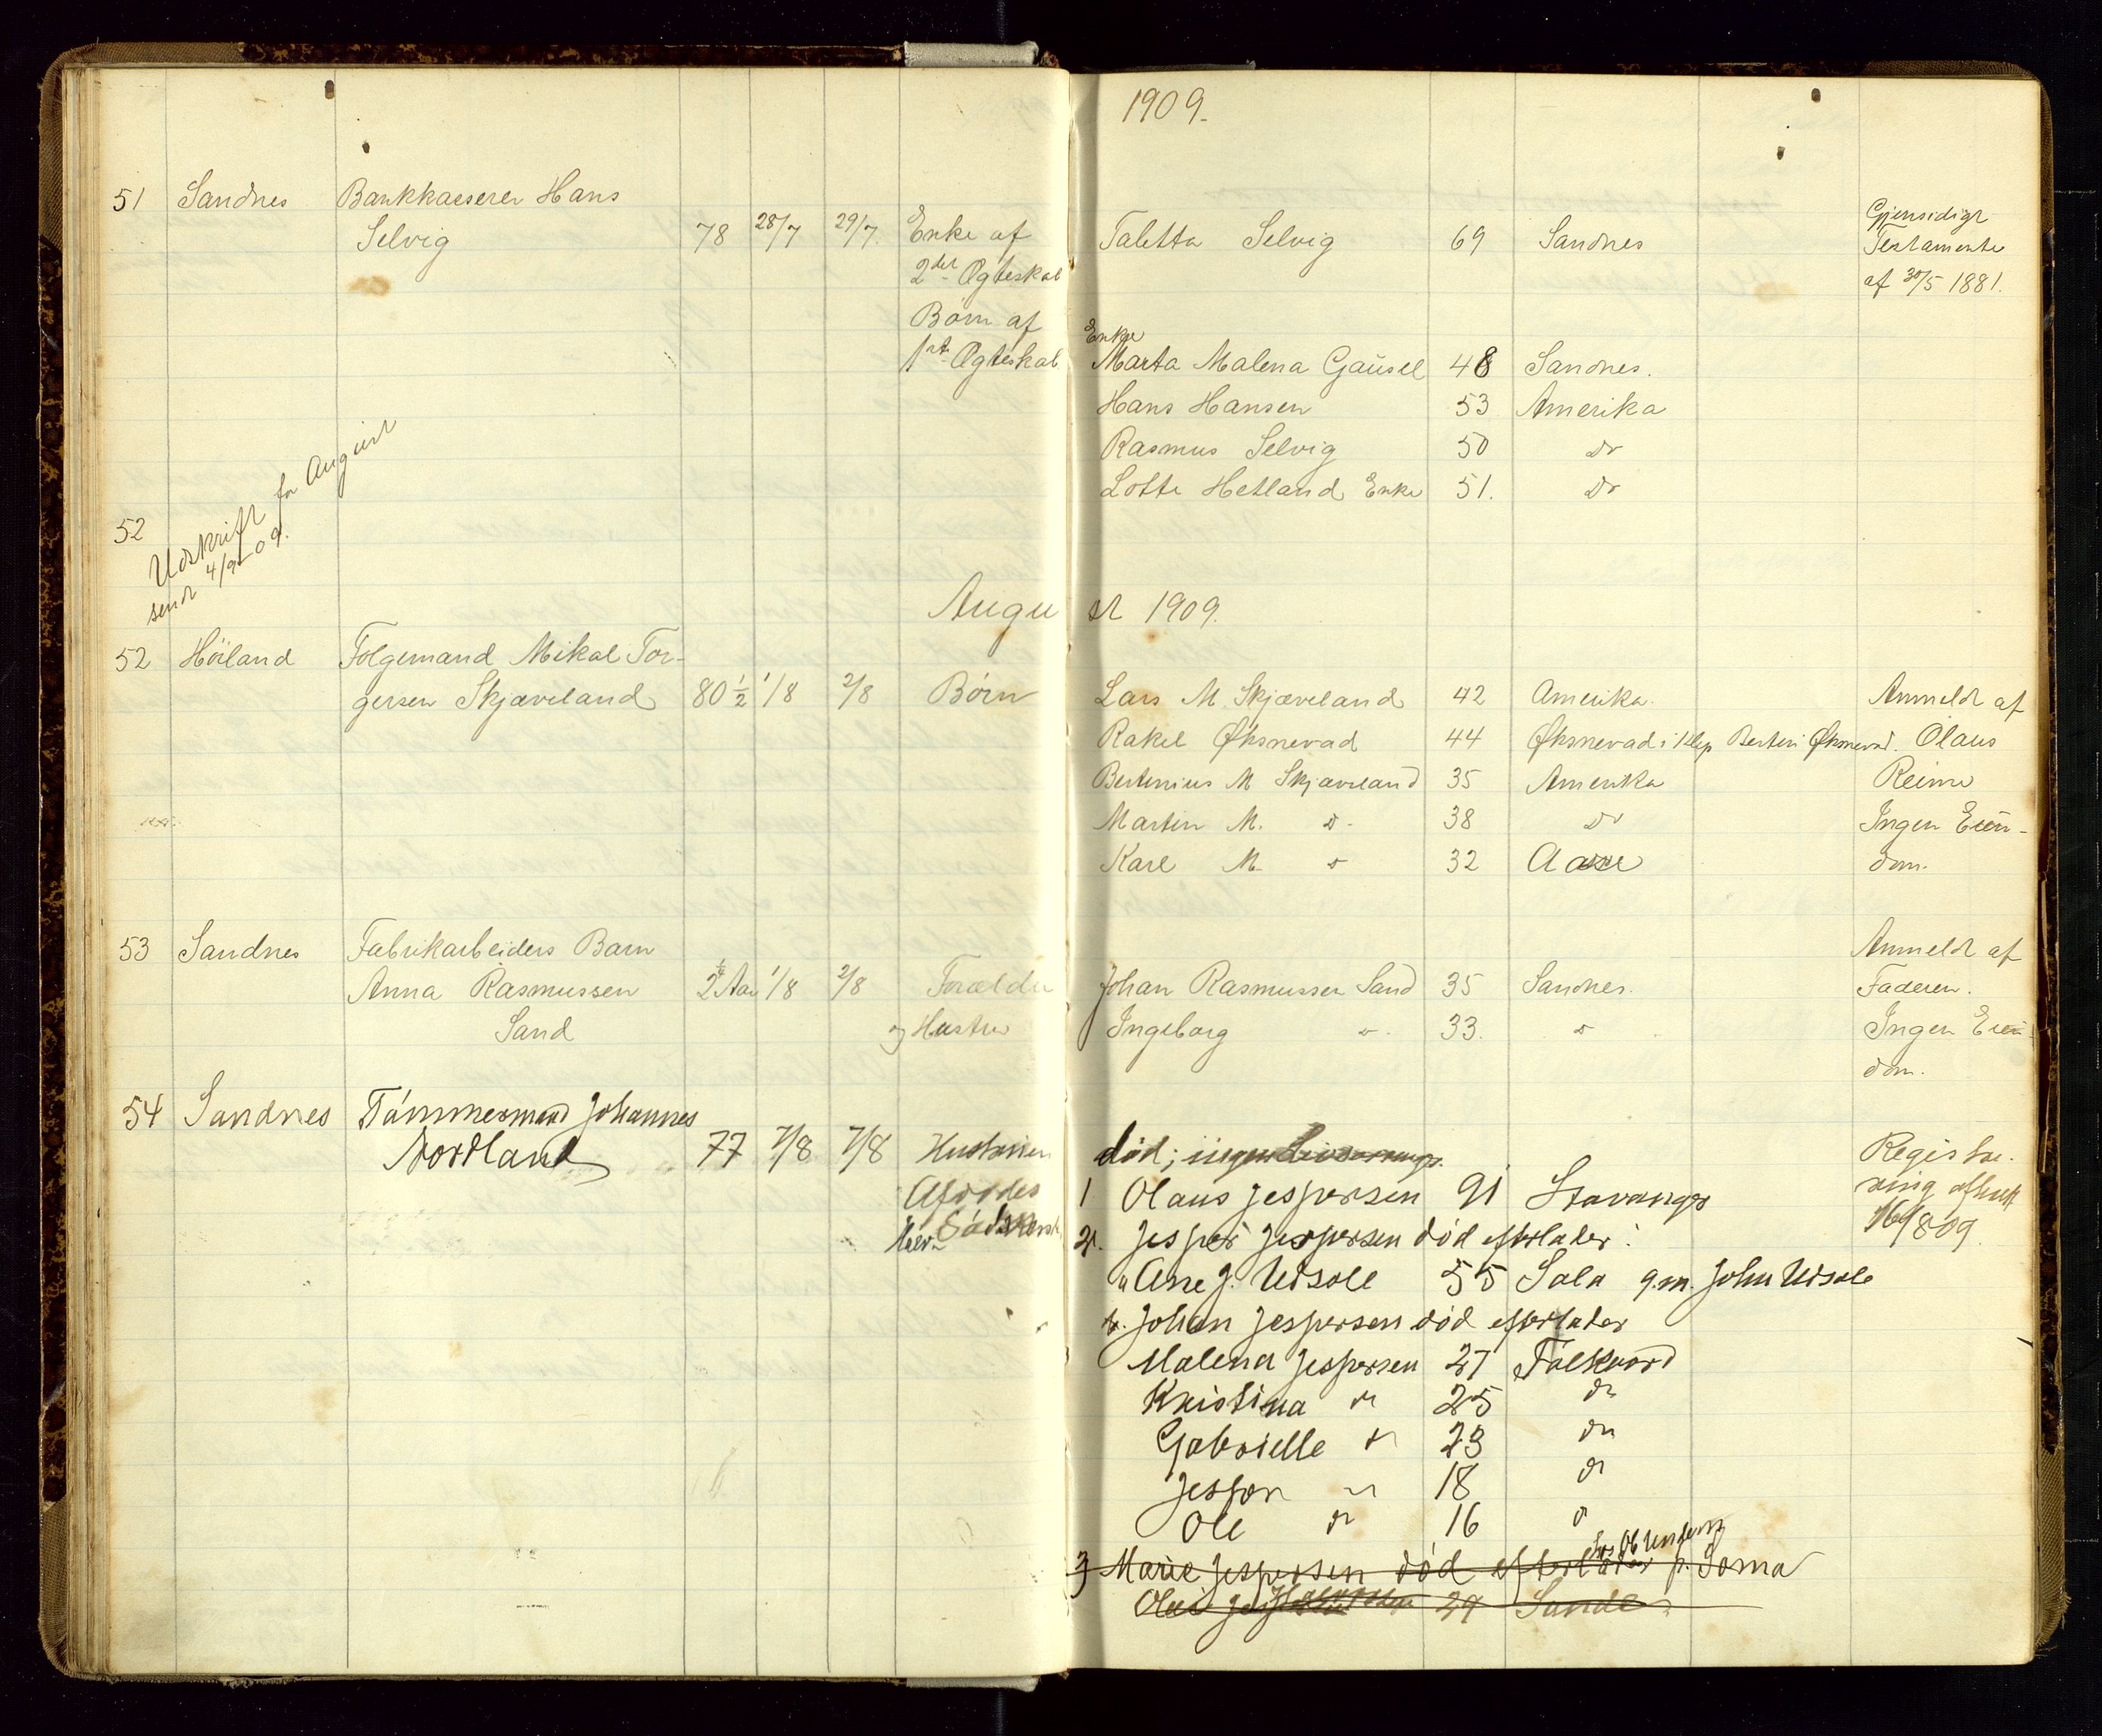 1909.
51 Sandnes Bankkaserer Hans
Selvig 78 28/7 29/7 Enke af Taletta Selvig 69 Sandnes Gjensidigt Testamente
2det Ægteskab af 30/5 1881.
Børn af
1st Ægteskab Enke Marta Malena Gausel 48 Sandnes.
Hans Hansen 53 Amerika
Rasmus Selvig 50 Do
Lotte Hetland Enke 51. Do
52
Udskrift for August
sendt 4/9 09.
August 1909.
52 Höiland Folgemand Mikal Tor-
gersen Skjæveland 80 1/2 1/8 2/8 Børn Lars M. Skjæveland 42 Amerika. Anmeldt af
Rakel Øksnevad 44 Øksnevad i Klep Berten Øksnevad. Olaus
Bertinius M Skjæveland 35 Amerika Reime
Martin M. do 38 Do Ingen Eien-
Karl M do 32 Aase dom.
53 Sandnes Fabrikarbeiders Barn Anmeldt af
Anna Rasmussen 2 1/4 Aar 1/8 2/8 Forældre Johan Rasmussen Sand 35 Sandnes. Faderen.
Sand og Hustru Ingeborg do 33. do Ingen Eien-
dom.
54 Sandnes Tömmermand Johannes
Nordland 77 7/8 7/8 Hustruen död; ingen Livsarvinger. Registre-
Afdödes 1 Olaus Jespersen 91 Stavanger ring afholdt
Halv Södskende 2. Jesper Jespersen död efterlader: 16/8 09
Ane J. Udsole 55 Sola g.m. John Udsole
Johan Jespersen död efterlader
Malena Jespersen 27 Tolkvord
Kristina do 25 do
Gabrielle do 23 do
Jesper do 18 do
Ole do 16 do
3 Marie Jespersen död efterlader p. Soma
29 Sande